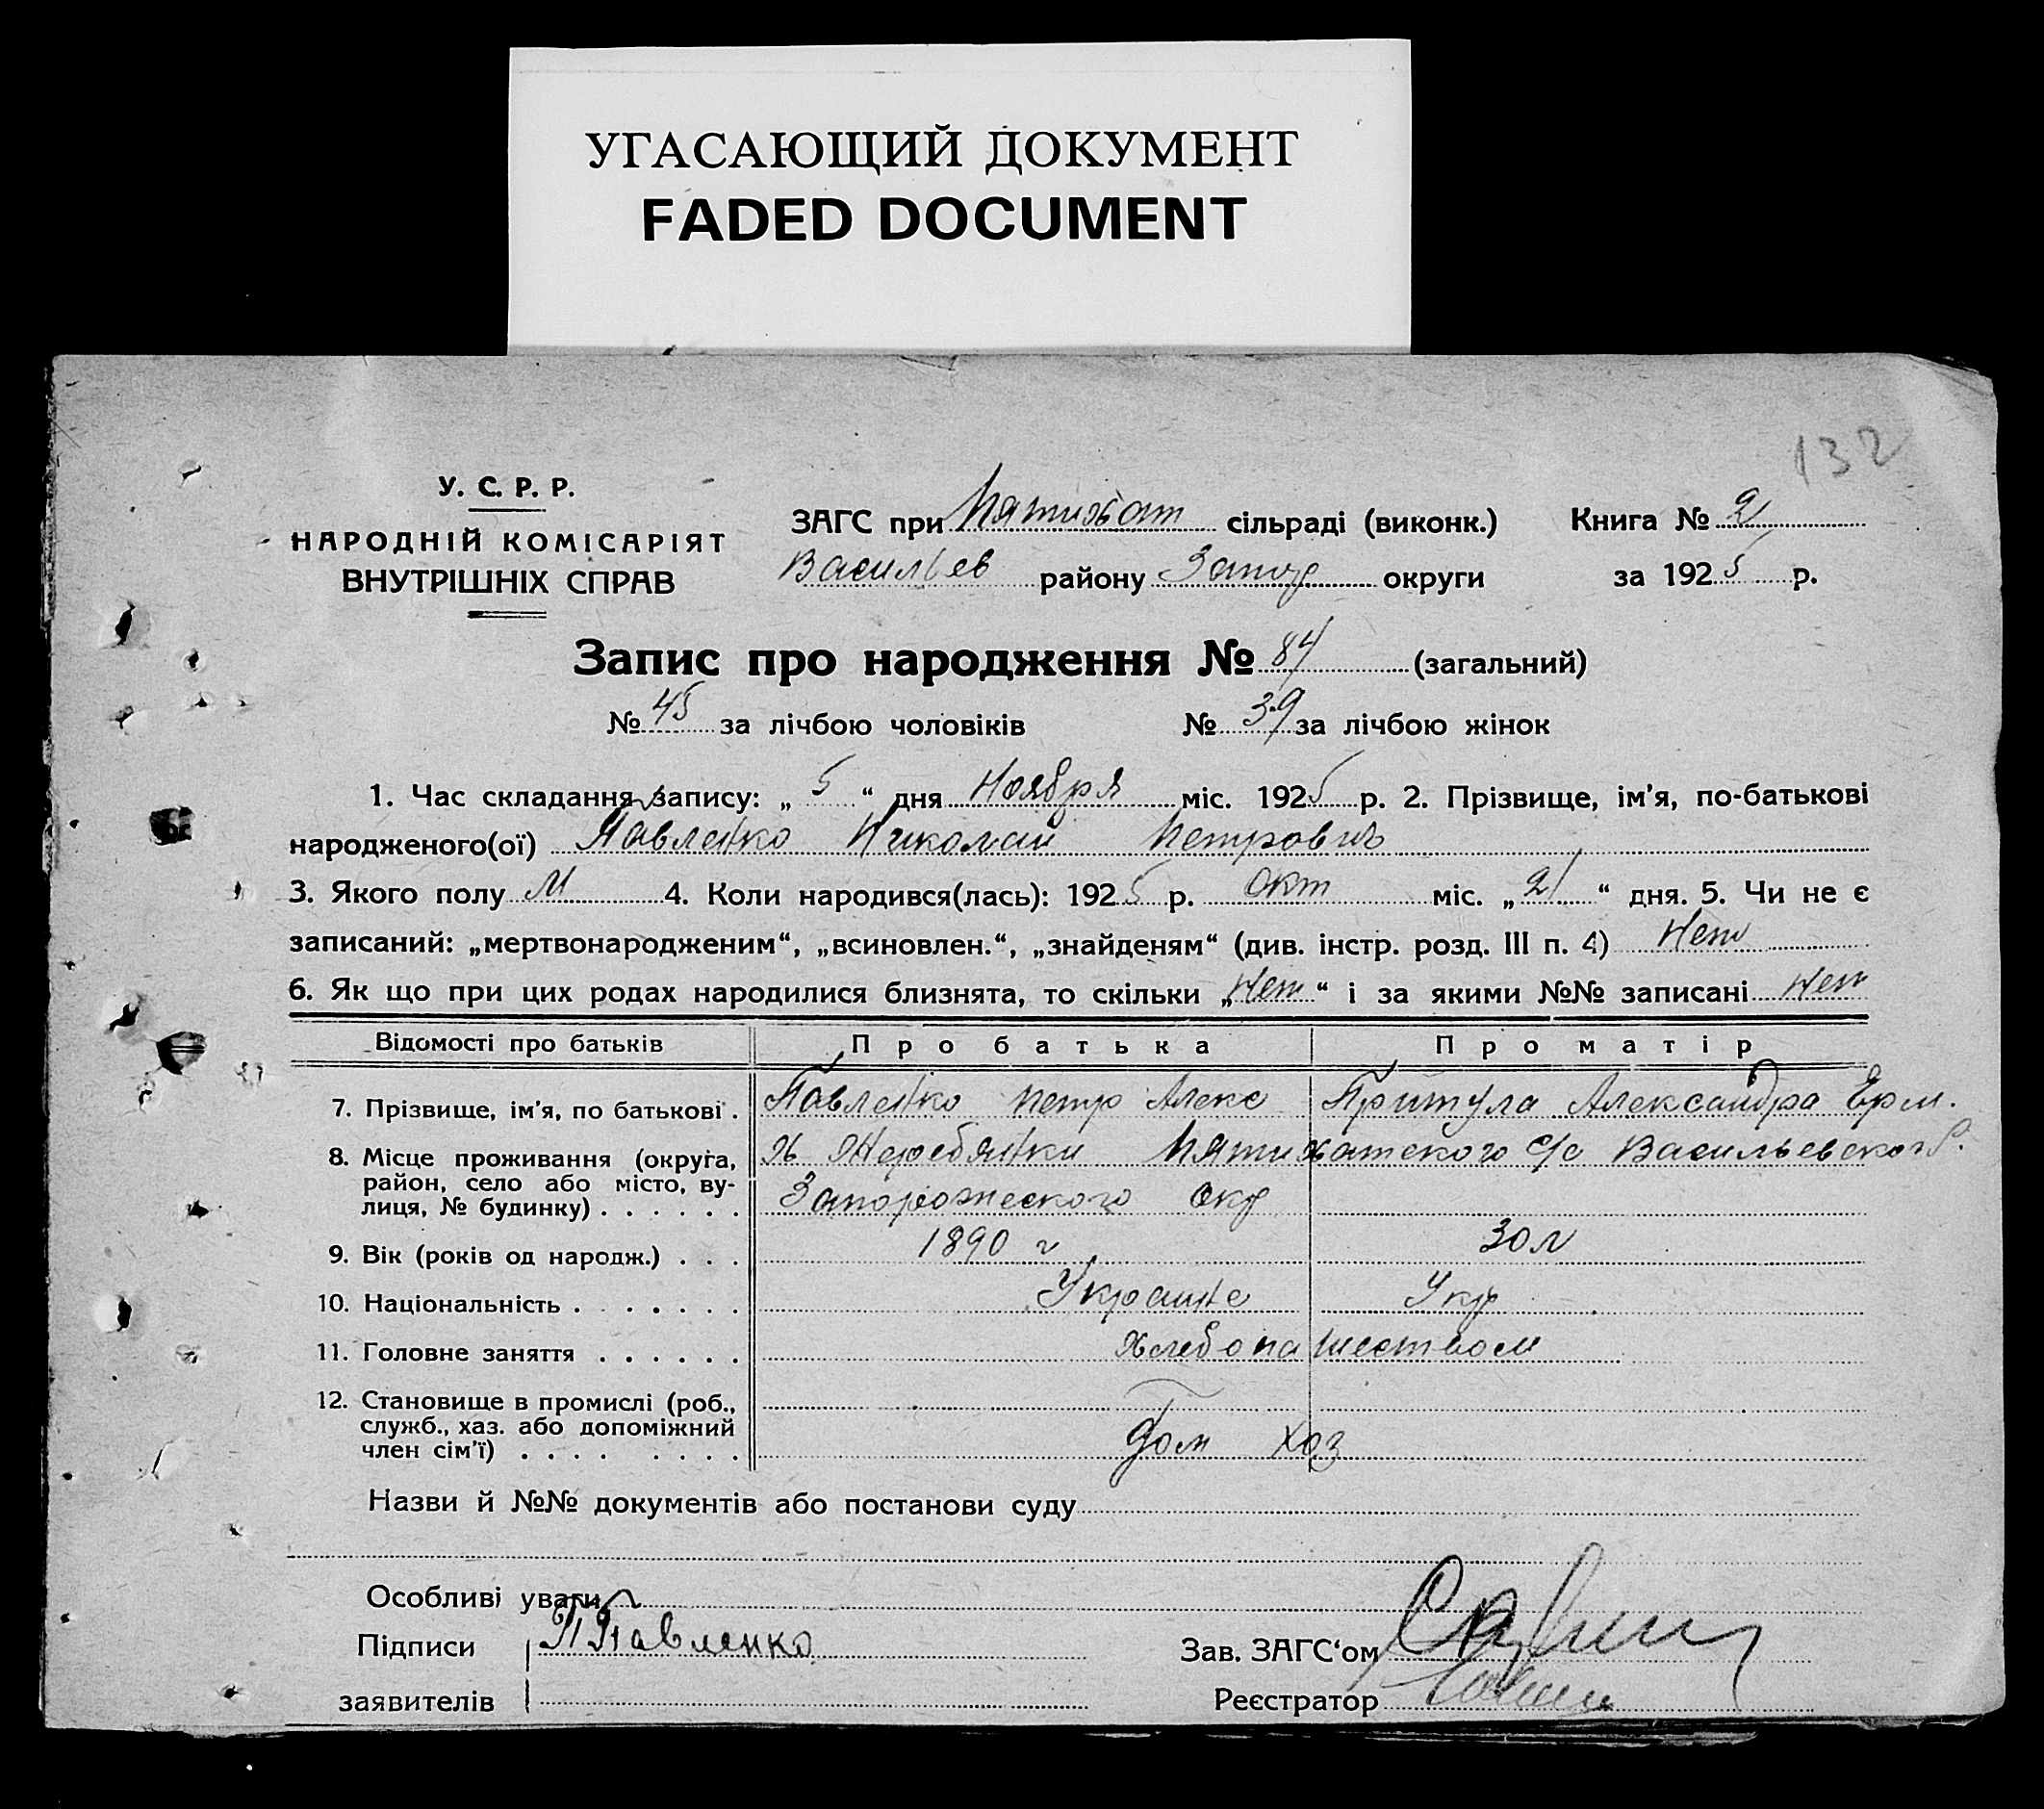 УГАСАЮЩИЙ ДОКУМЕНТ
FADED DOCUMENT
132
У. С. Р. Р.
НАРОДНІЙ КОМІСАРІЯТ
ВНУТРІШНІХ СПРАВ
ЗАГС при Пятихат сільраді (виконк.) Книга № 2
Васильев району Запор округи за 1925 р.
Запис про народження № 84 (загальний)
№ 45 за лічбою чоловіків № 39 за лічбою жінок
1. Час складання запису: „ 5 “ дня Ноября міс. 1925 р. 2. Прізвище, ім’я, по-батькові
народженого(ої) Павленко Николай Петрович
3. Якого полу М 4. Коли народився(лась): 1925 р. окт міс. „ 21 “ дня. 5. Чи не є
записаний: „мертвонародженим“, „всиновлен.“, „знайденям“ (див. інстр. розд. III п. 4) Нет
6. Як що при цих родах народилися близнята, то скільки „ Нет “ і за якими №№ записані Нет
Відомості про батьків Про батька Про матір
7. Прізвище, ім’я, по батькові . Павленко Петр Алекс Притула Александра Ерм.
8. Місце проживання (округа, район, село або місто, вулиця, № будинку) . . . . . . х Жеребянки Пятихатского с/с Васильевского Р.
Запорожского окр
9. Вік (років од народж.) . . . 1890 г 30 л
10. Національність . . . . . . . Украинс Укр
11. Головне заняття . . . . . . Хлебопашеством
12. Становище в промислі (роб.,
служб., хаз. або допоміжний
член сім’ї) . . . . . . . . Дом Хоз
Назви й №№ документів або постанови суду
Особливі уваги
Підписи П Павленко Зав. ЗАГС‘ом
заявителів Реєстратор